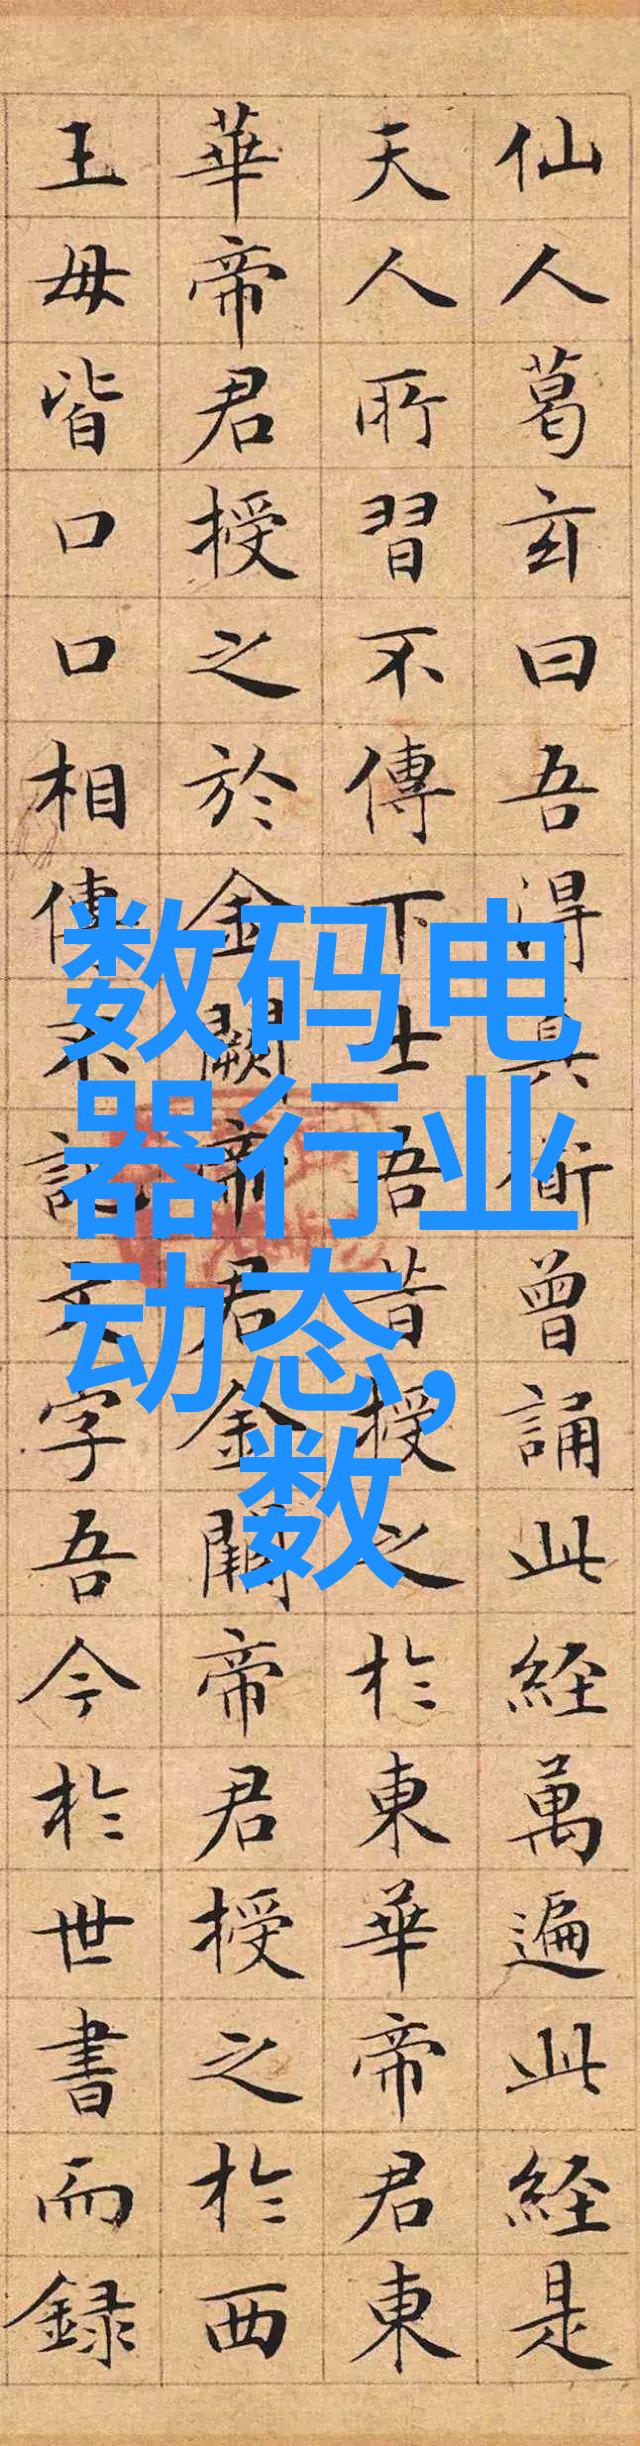 仙人葛玄曰吾得真術曾誦此経萬遍此経是
天人所習不傳下士吾昔授之於東華帝君東
華帝君授之於金闕帝君金闕帝君授之於西
王母皆口口相傳不記文字吾今於世書而録
数码电
器行业
动态,
数